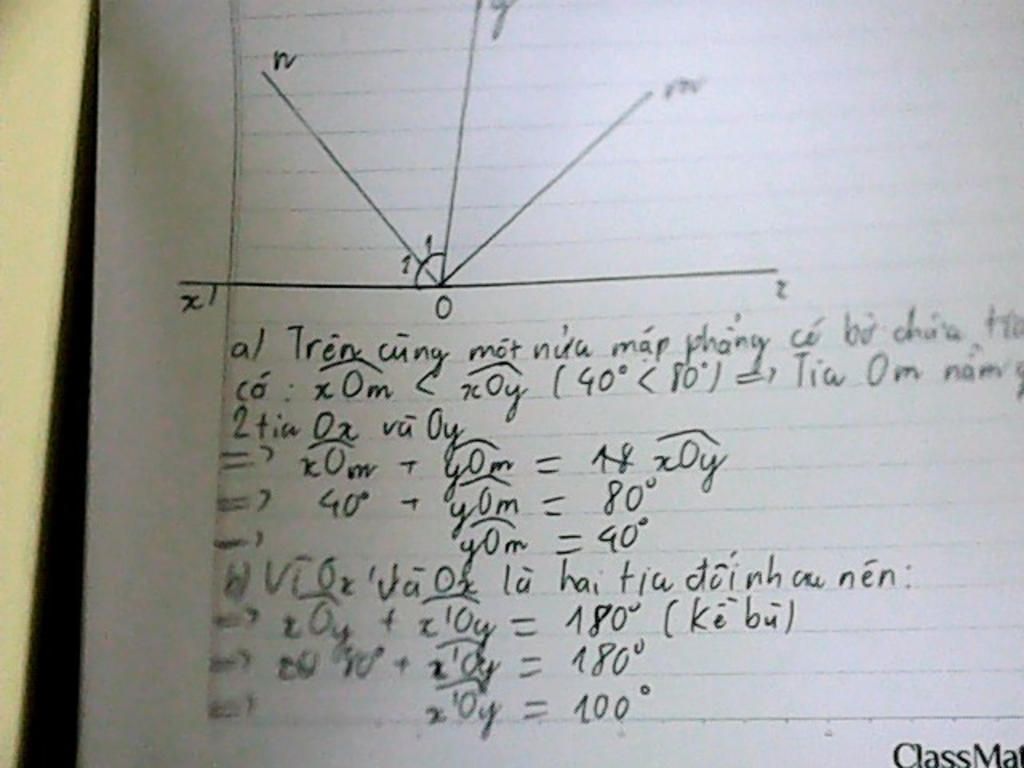 y
n
m
1
2
x'
O
x
a) Trên cùng một nửa mặp phẳng có bờ chứa tia
có: xOm < xOy (40° < 80°) => Tia Om nằm
2 tia Ox và Oy
=> xOm + yOm = xOy
=> 40° + yOm = 80°
=> yOm = 40°
b) Vì Ox' và Ox là hai tia đối nhau nên:
=> xOy + x'Oy = 180° (kề bù)
=> + x'Oy = 180°
=> x'Oy = 100°
ClassMat